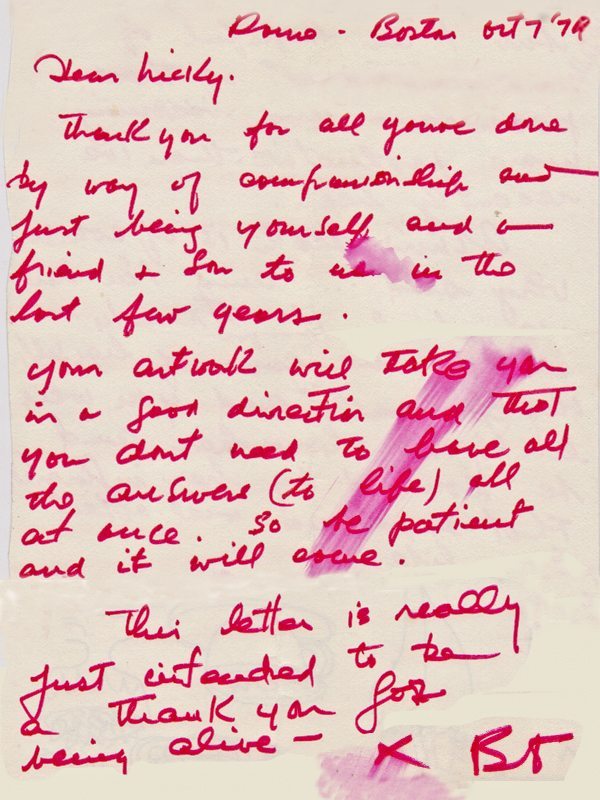 Rome - Boston Oct 7 '79
Dear Nicky.
Thank you for all youve done
by way of companionship and
just being yourself and a
friend & Son to us in the
last few years.
your artwork will take you
in a good direction and that
you dont need to have all
the answers (to life) all
at once. So be patient
and it will come.
This letter is really
just intended to be
a thank you for
being alive -